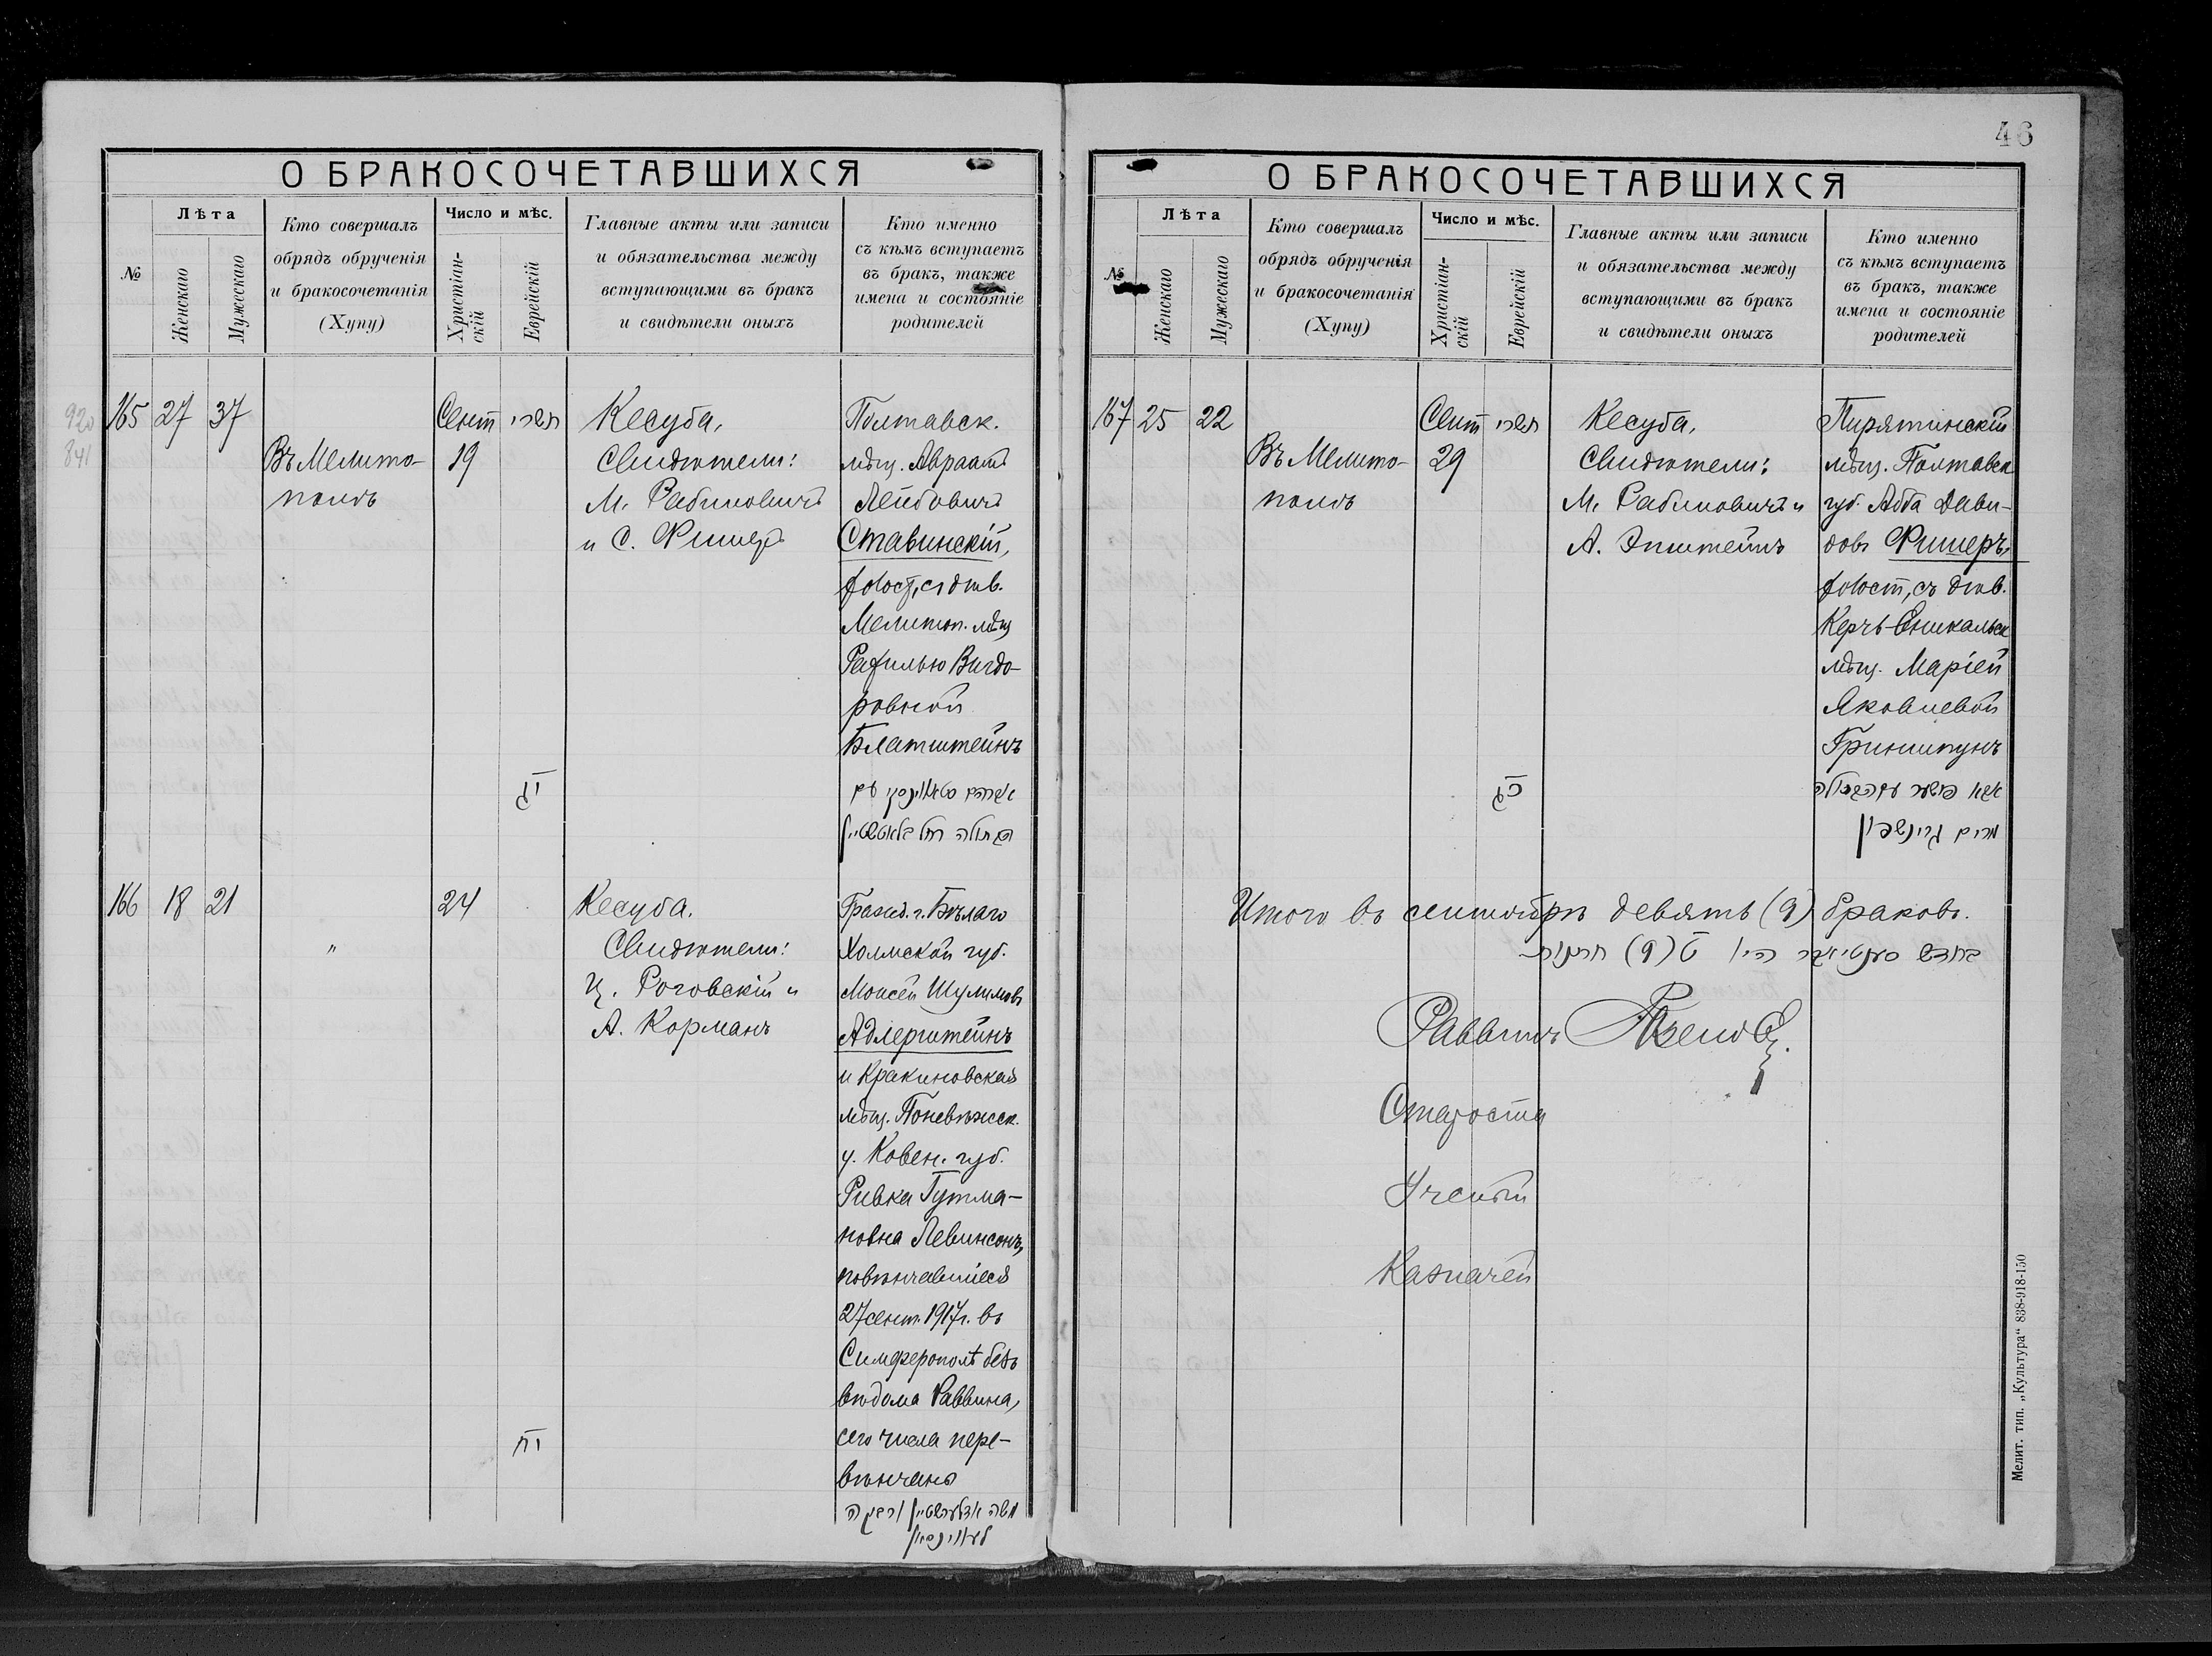 46
О БРАКОСОЧЕТАВШИХСЯ
№
Лѣта
Женскаго
Мужескаго
Кто совершалъ
обрядъ обрученія
и бракосочетанія
(Хупу)
Число и мѣс.
Христіан-
скій
Еврейскій
Главные акты или записи
и обязательства между
вступающими въ бракъ
и свидѣтели оныхъ
Кто именно
съ кѣмъ вступаетъ
въ бракъ, также
имена и состояніе
родителей
920
841
165 27 37
Въ Мелито-
полѣ
Сент תשרי
19
יג
Кесуба.
Свидѣтели:
М. Рабиновичъ
и С. Фишеръ
Полтавск.
мѣщ. Авраамъ
Лейбовичъ
Ставинскій,
холост, съ дѣв.
Мелитоп. мѣщ
Рахилью Вигдо-
ровной
Блатштейнъ
אברהם סטאווינסקי עם
בתולה רחל בלאטשטיין
166 18 21
"
24
יח
Кесуба.
Свидѣтели:
Ц. Роговскій и
А. Корманъ
Гражд. г. Бѣлаго
Холмской губ.
Моисей Шулимовъ
Адлерштейнъ
и Кракиновская
мѣщ. Поневѣжск.
у. Ковен. губ.
Ривка Гутма-
новна Левинсонъ,
повѣнчавшіеся
27 сент. 1917 г. въ
Симферополѣ безъ
вѣдома Раввина,
сего числа пере-
вѣнчаны
משה אדלערשטיין ורבקה
לעווינסון
О БРАКОСОЧЕТАВШИХСЯ
№
Лѣта
Женскаго
Мужескаго
Кто совершалъ
обрядъ обрученія
и бракосочетанія
(Хупу)
Число и мѣс.
Христіан-
скій
Еврейскій
Главные акты или записи
и обязательства между
вступающими въ бракъ
и свидѣтели оныхъ
Кто именно
съ кѣмъ вступаетъ
въ бракъ, также
имена и состояніе
родителей
167 25 22
Въ Мелито-
полѣ
Сент תשרי
29
כג
Кесуба.
Свидѣтели:
М. Рабиновичъ и
А. Эпштейнъ
Пирятинскій
мѣщ. Полтавск
губ. Абба Дави-
довъ Фишеръ,
холост, съ дѣв.
Керчь-Еникальск
мѣщ. Маріей
Яковлевой
Гриншпунъ
אבא פישער עם הבתולה
מרים גרינשפון
Итого въ сентябрѣ девять (9) браковъ.
בחדש סענטיאבר היו ט (9) חתונות
Раввинъ
Староста
Ученый
Казначей
Мелит. тип. „Культура“ 838-918-150